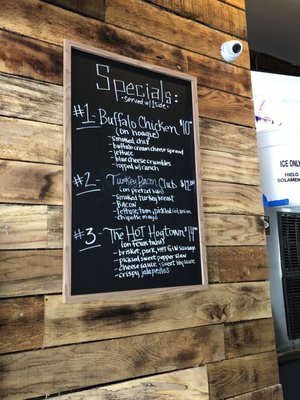 Specials:
•served w/ 1 side•
#1- Buffalo Chicken $10
(on hoagie)
- smoked chix
- buffalo cream cheese spread
- lettuce
- blue cheese crumbles
- topped w/ ranch
#2- Turkey Bacon Club $12.00
(on pretzel bun)
- smoked turkey breast
- BACON
- lettuce, tom, pickled red onion
- chipotle mayo
#3- The HOT Hogtown $14
(on texas toast)
- brisket, pork, sausage
- pickled sweet pepper slaw
- cheese sauce + sweet bbq sauce
- crispy jalapeños
ICE ONLY
HIELO
SOLAMEN
ICE ONLY